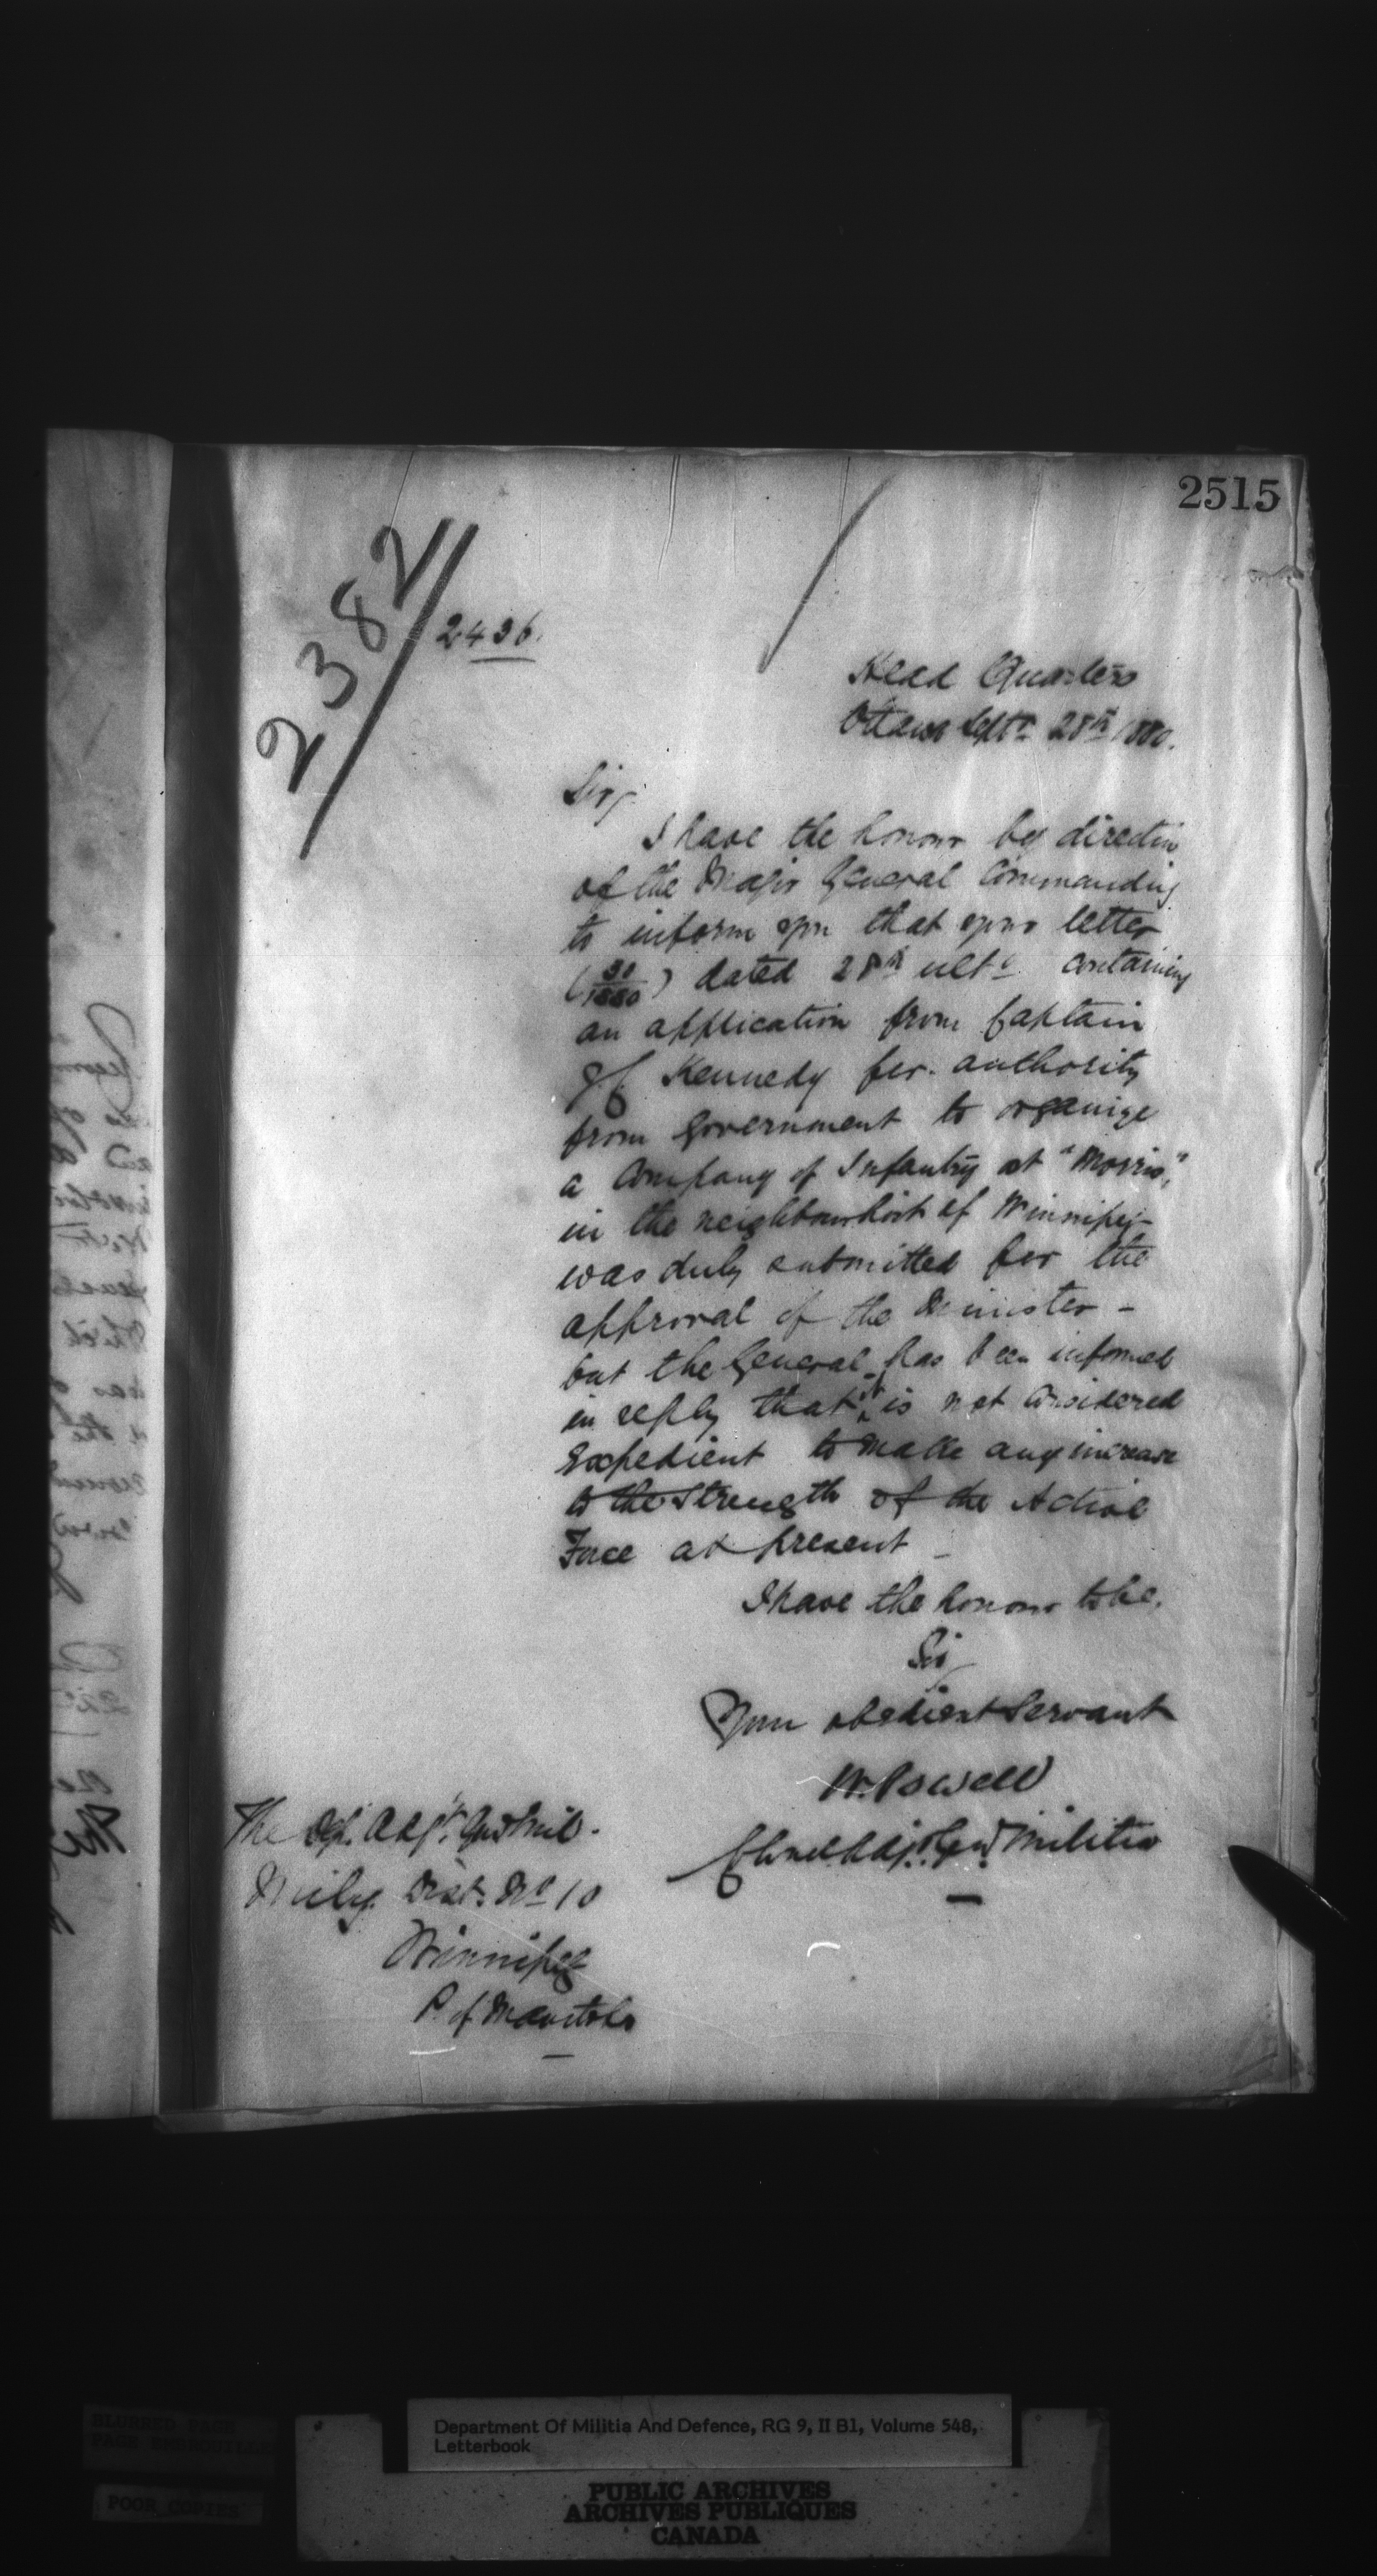 2515
2382
2436.
Head Quarters
Ottawa Septr 28th 1880.
Sir,
I have the honour by direction
of the Major General Commanding
to inform you that your letter
(30/1880) dated 28th ulto containing
an application from Captain
Kennedy for authority
from Government to organize
a Company of Infantry at "Morris",
in the neighbourhood of Winnipeg
was duly submitted for the
approval of the Minister -
but the General has been informed
in reply that it is not considered
expedient to make any increase
to the Strength of the Active
Force at present -
I have the honour to be,
Sir
Your obedient Servant
W. Powell
Colonel Adjt. Genl Militia
The Dep. Adjt. Genl Mil.
Mily. Dist. No 10
Winnipeg
P. of Manitoba
Department Of Militia And Defence, RG 9, II B1, Volume 548,
Letterbook
BLURRED PAGE
POOR COPIES
PUBLIC ARCHIVES
ARCHIVES PUBLIQUES
CANADA